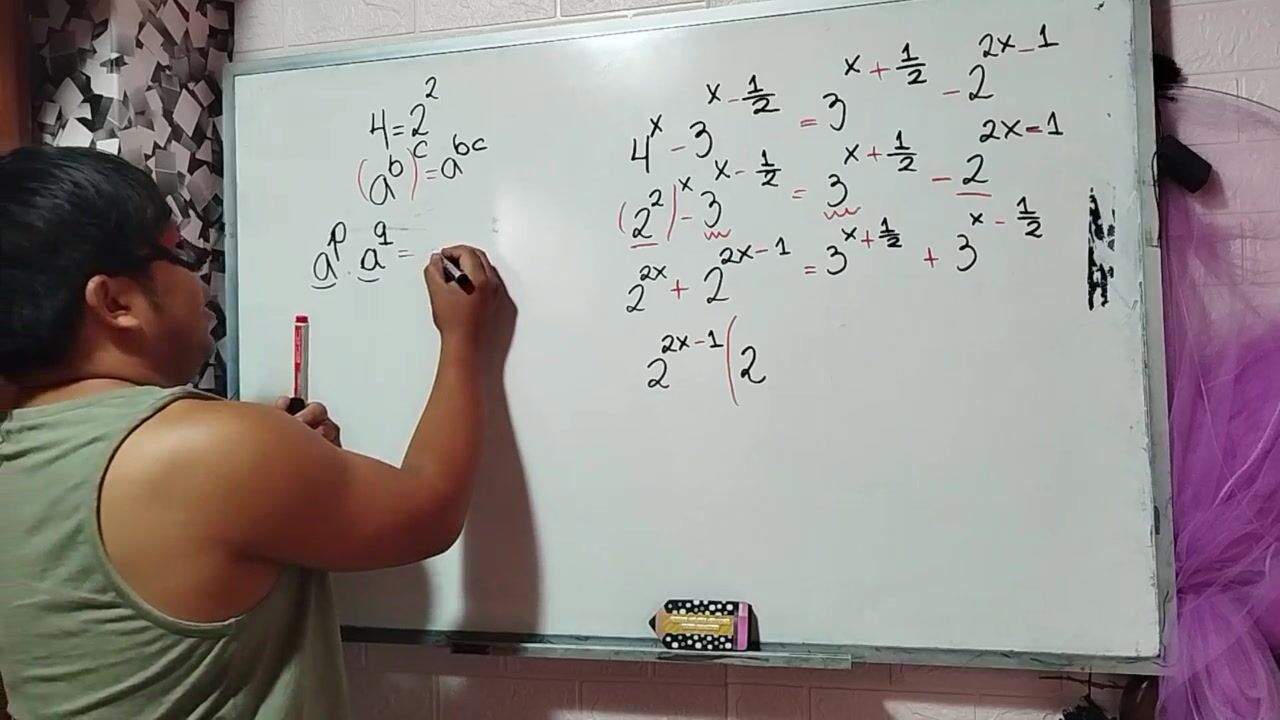 4 = 2^2
(a^b)^c = a^bc
a^p · a^q =
4^x - 3^(x - 1/2) = 3^(x + 1/2) - 2^(2x - 1)
(2^2)^x - 3^(x - 1/2) = 3^(x + 1/2) - 2^(2x - 1)
2^(2x) + 2^(2x - 1) = 3^(x + 1/2) + 3^(x - 1/2)
2^(2x - 1) (2